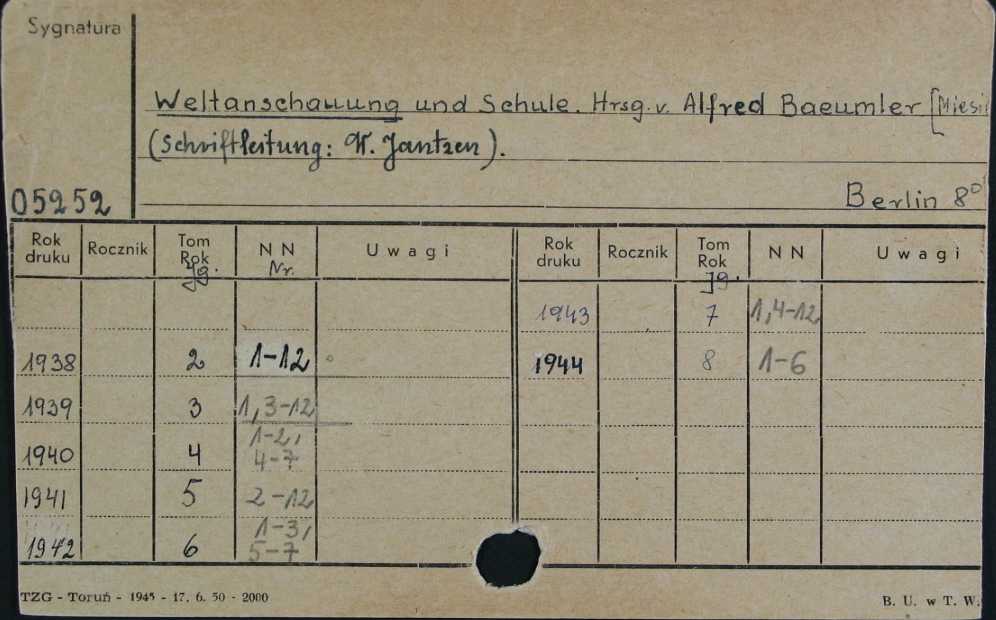 Sygnatura
Weltanschauung und Schule. Hrsg. v. Alfred Baeumler [Miesi
(Schriftleitung: W. Jantzen).
05252
Berlin 8°
Rok druku Rocznik Tom Rok Jg. N N Nr. Uwagi Rok druku Rocznik Tom Rok Jg. N N Uwagi
1943 7 1,4-12
1938 2 1-12 1944 8 1-6
1939 3 1,3-12
1940 4 1-2, 4-7
1941 5 2-12
1942 6 1-3, 5-7
TZG - Toruń - 1945 - 17. 6. 50 - 2000 B. U. w T. W.